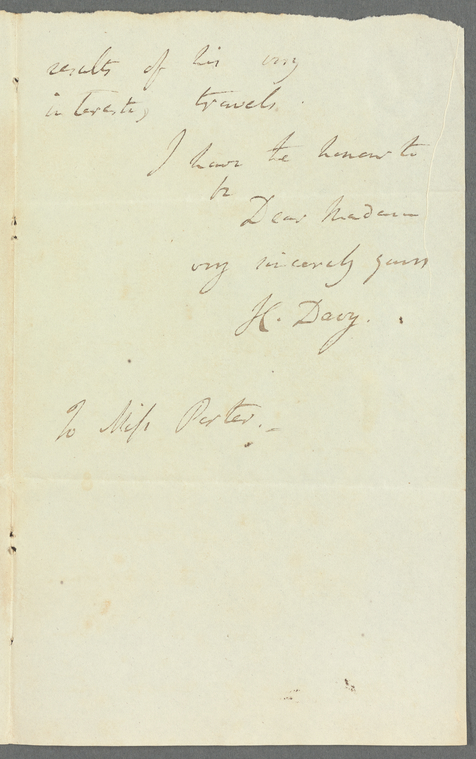 results of his very
interesting travels.
I have the honor to
be
Dear Madam
very sincerely yours
H. Davy.
To Miss Porter.